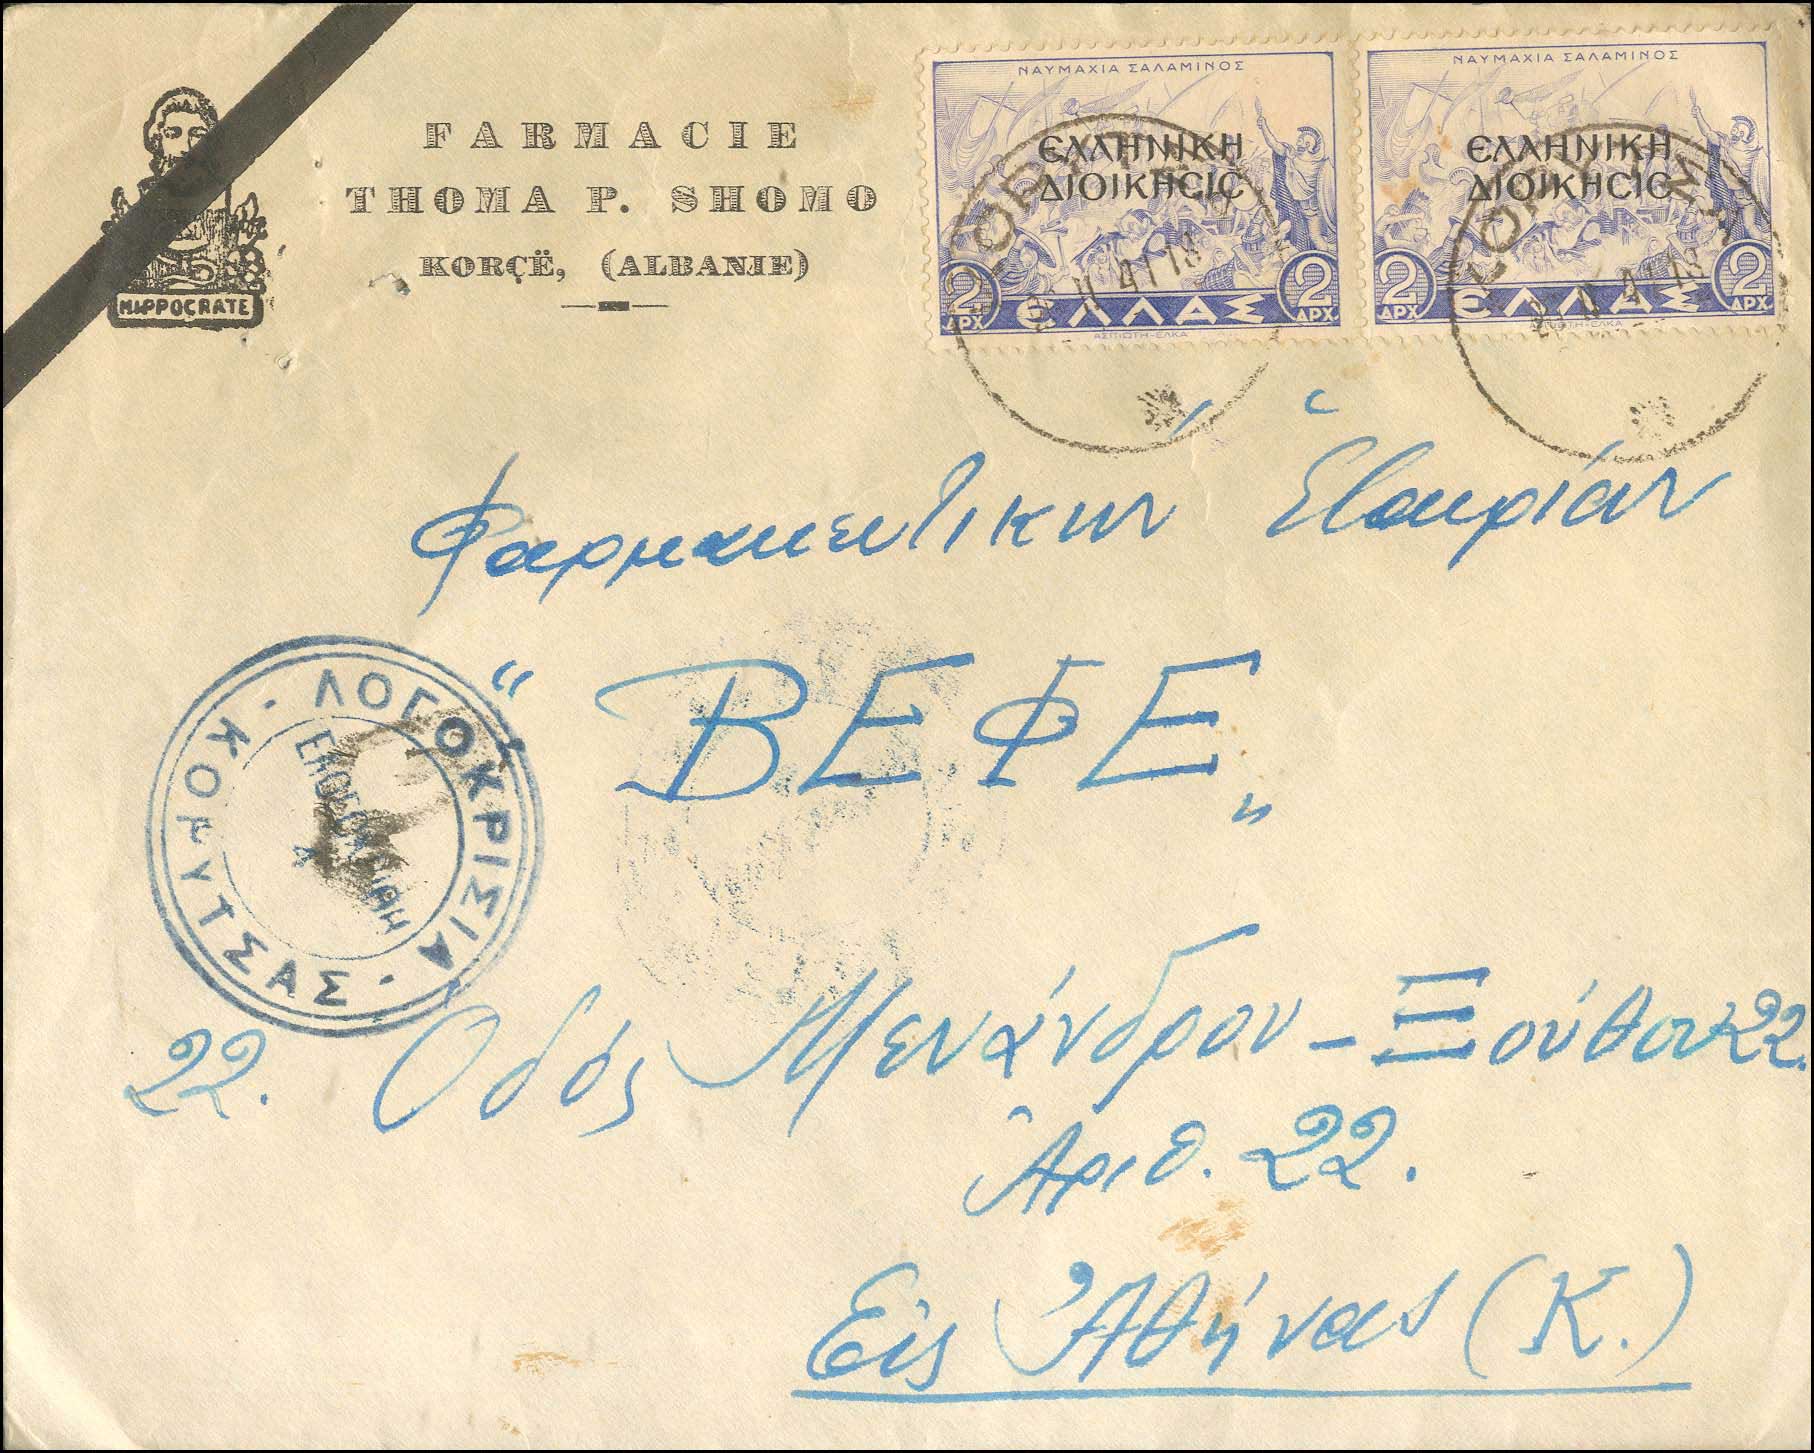 FARMACIE
THOMA P. SHOMO
KORÇË, (ALBANIE)
HIPPOCRATE
ΝΑΥΜΑΧΙΑ ΣΑΛΑΜΙΝΟΣ
ΕΛΛΗΝΙΚΗ
ΔΙΟΙΚΗCΙC
2 ΔΡΧ. ΕΛΛΑΣ 2 ΔΡΧ.
ΑΣΠΙΩΤΗ-ΕΛΚΑ
ΝΑΥΜΑΧΙΑ ΣΑΛΑΜΙΝΟΣ
ΕΛΛΗΝΙΚΗ
ΔΙΟΙΚΗCΙC
2 ΔΡΧ. ΕΛΛΑΣ 2 ΔΡΧ.
ΑΣΠΙΩΤΗ-ΕΛΚΑ
II 41 18
41 18
Φαρμακευτικήν Ἑταιρίαν
"ΒΕΦΕ„
ΛΟΓΟΚΡΙΣΙΑ · ΚΟΡΥΤΣΑΣ ·
22. Οδός Μενάνδρου – Ξούθου 22.
Ἀριθ. 22.
Εἰς Ἀθήνας (Κ.)